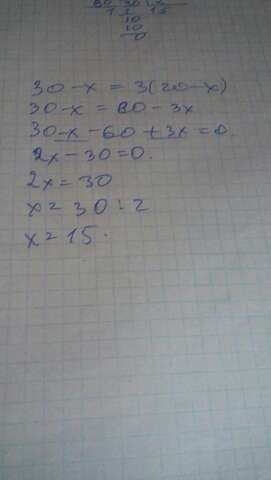 10
10
0
30 - x = 3(20 - x)
30 - x = 60 - 3x
30 - x - 60 + 3x = 0.
2x - 30 = 0.
2x = 30
x = 30 : 2
x = 15.